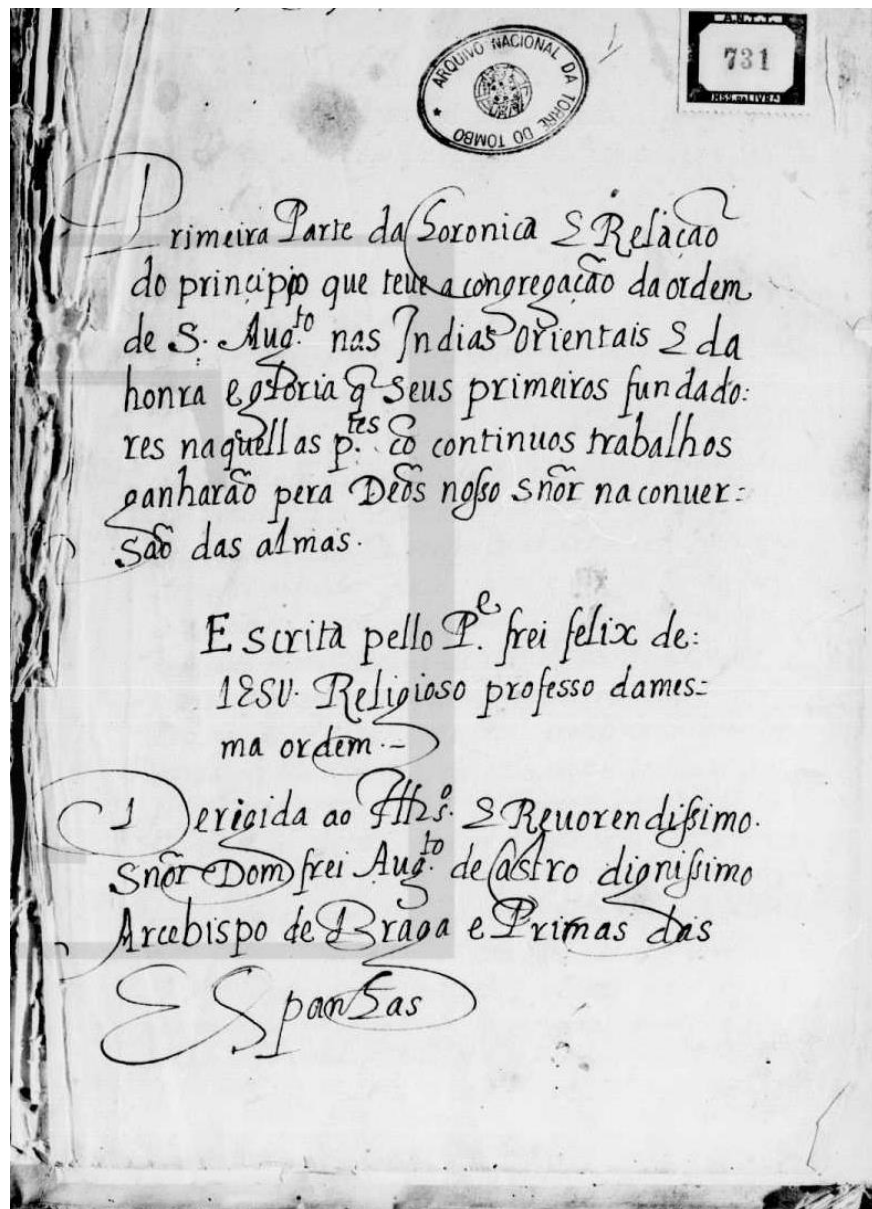 ARQUIVO NACIONAL DA TORRE DO TOMBO
A.N.T.T.
731
MSS. DA LIVRA.
Primeira Parte da Coronica E Relação
do principio que teue a congregação da ordem
de S. Aug.to nas Indias Orientais E da
honra e gloria q̃ seus primeiros fundado:
res naquellas p.tes cõ continuos trabalhos
ganharão pera Deõs nosso Sñor na conuer:
são das almas.
Escrita pello P.e frei felix de:
IESV. Religioso professo da mes:
ma ordem.-
Derigida ao Illr.o E Reuorendissimo.
Sñor Dom frei Aug.to de Castro dignissimo
Arcebispo de Braga e Primas das
ESpanhas